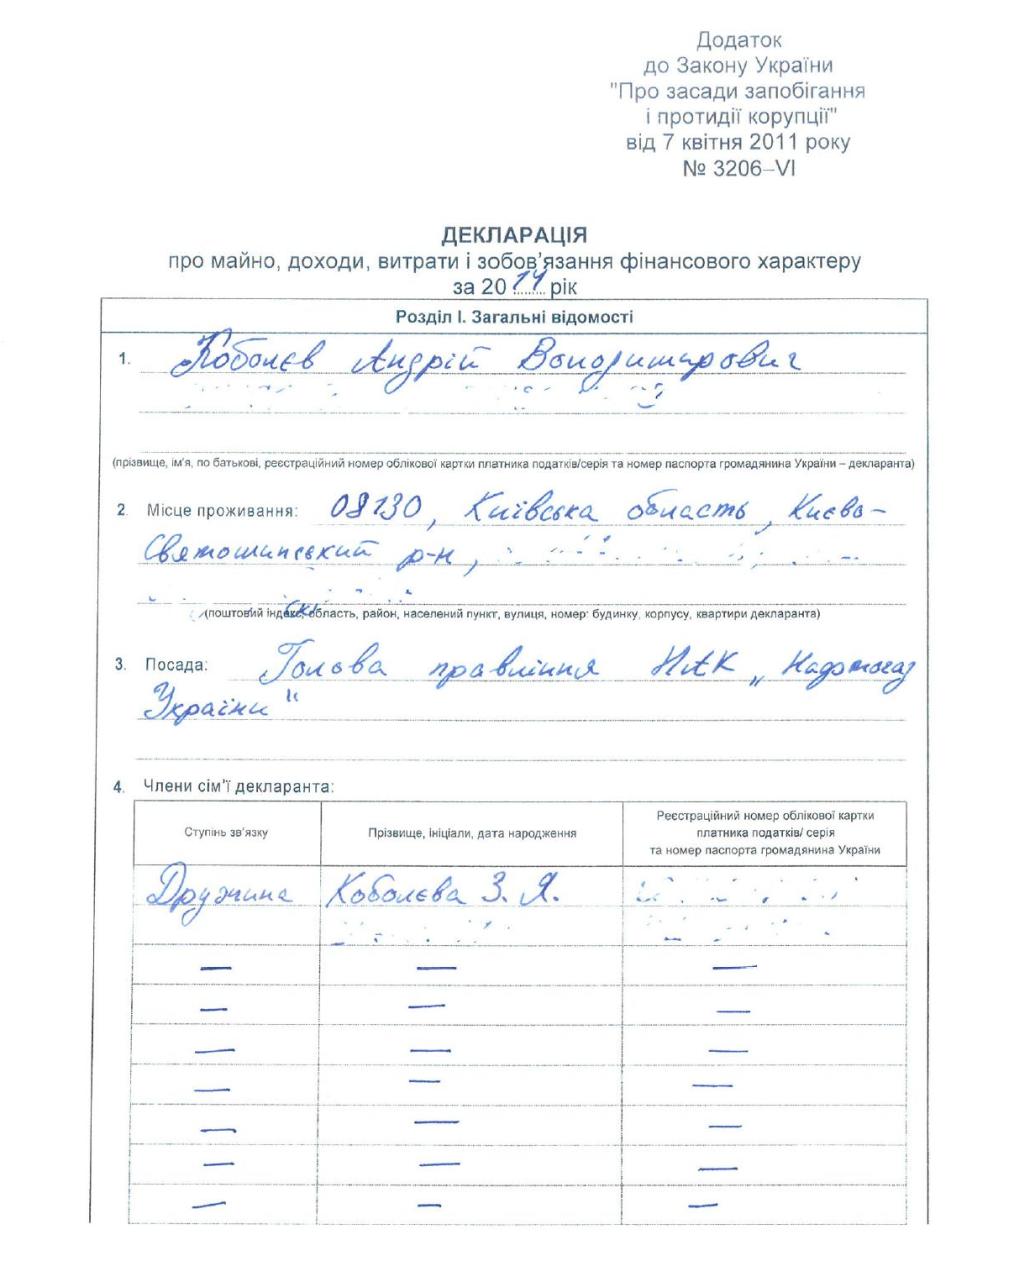 Додаток
до Закону України
"Про засади запобігання
і протидії корупції"
від 7 квітня 2011 року
№ 3206–VI
ДЕКЛАРАЦІЯ
про майно, доходи, витрати і зобов'язання фінансового характеру
за 2014 рік
Розділ I. Загальні відомості
1. Коболєв Андрій Володимирович
(прізвище, ім'я, по батькові, реєстраційний номер облікової картки платника податків/серія та номер паспорта громадянина України – декларанта)
2. Місце проживання: 08130, Київська область, Києво-
Святошинський р-н,
(поштовий індекс, область, район, населений пункт, вулиця, номер: будинку, корпусу, квартири декларанта)
3. Посада: Голова правління НАК „Нафтогаз
України"
4. Члени сім'ї декларанта:
Ступінь зв'язку
Прізвище, ініціали, дата народження
Реєстраційний номер облікової картки
платника податків/ серія
та номер паспорта громадянина України
Дружина Коболєва З. Я.
— — —
— — —
— — —
— — —
— — —
— — —
— — —